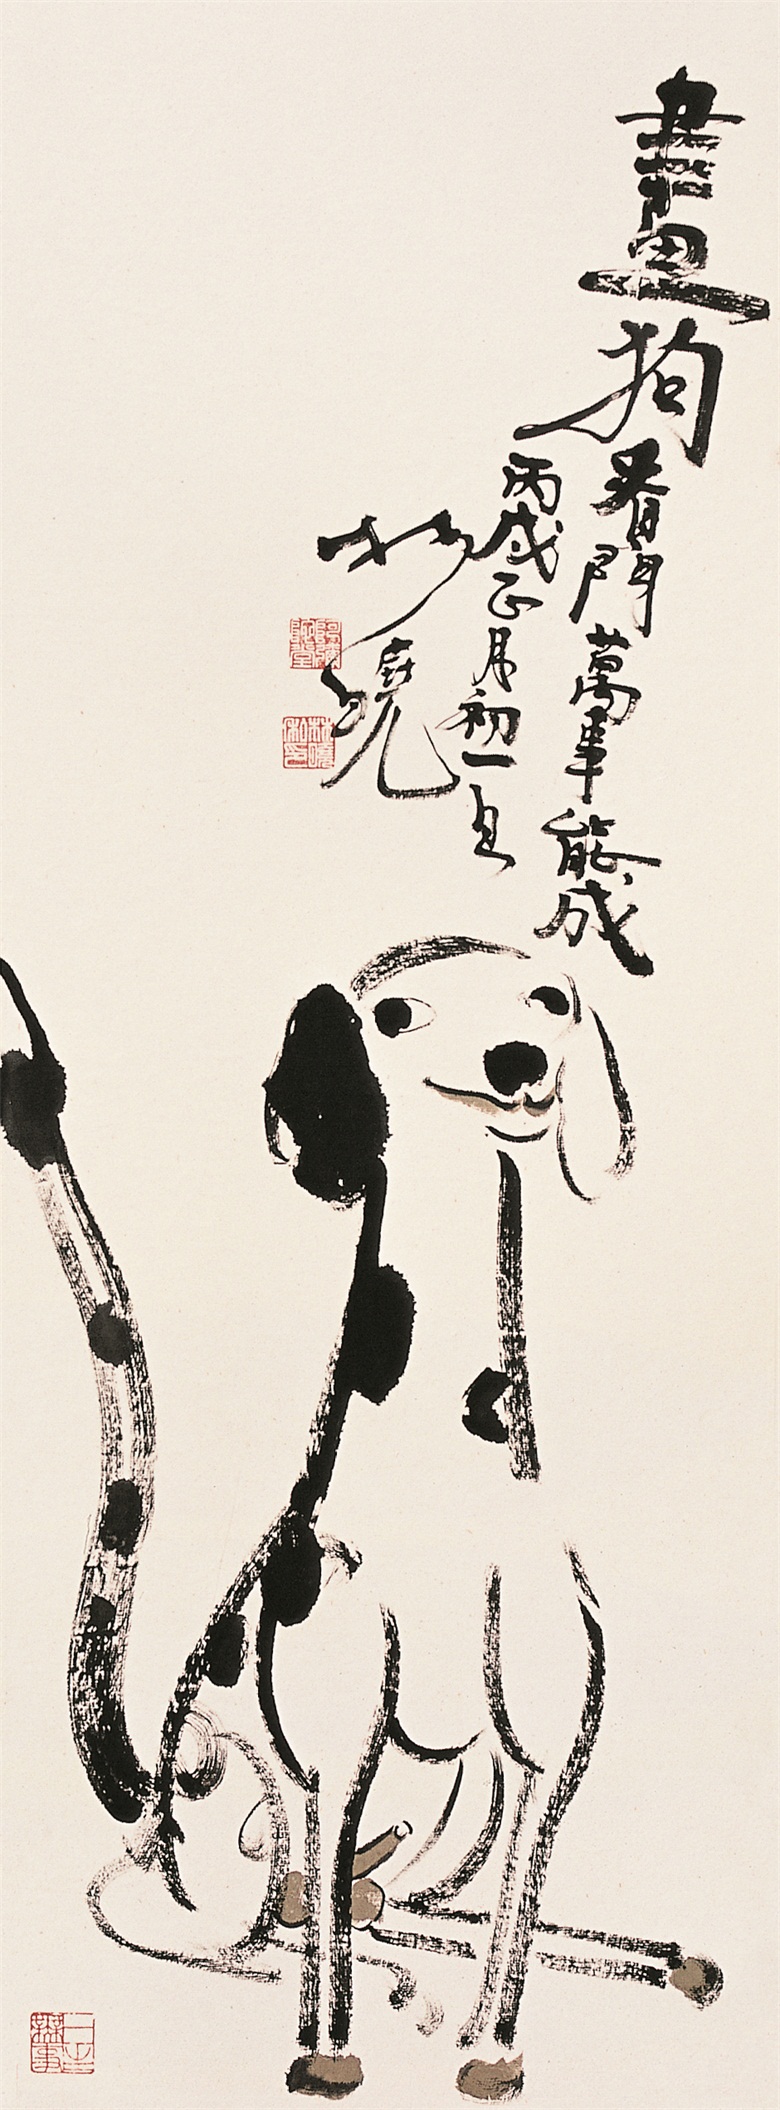 畫狗看門萬事能成
丙戌正月初一日
林曉